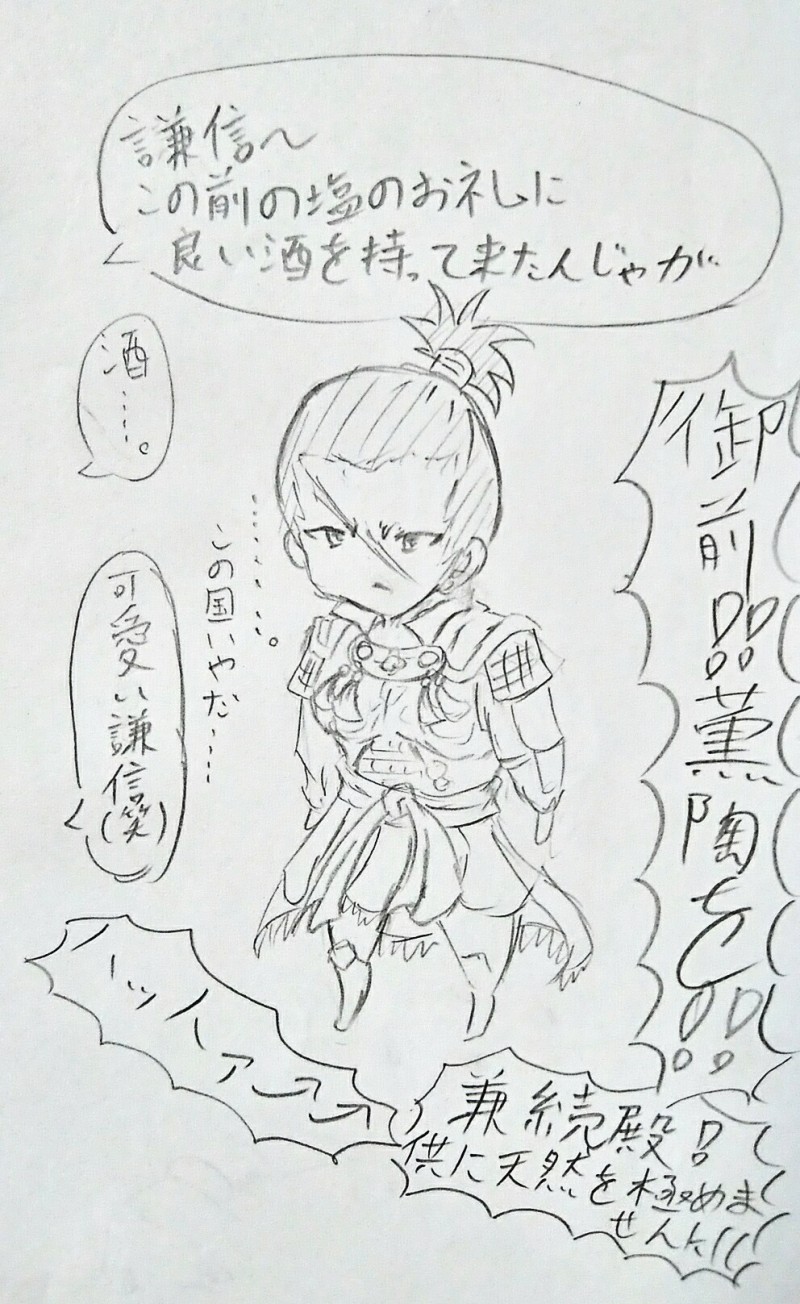 謙信へ
この前の塩のお礼に
良い酒を持って来たんじゃが
御前!!薫陶を!!
酒……。
………。
この国いやだ……
可愛い謙信(笑)
ハッハァーーー
兼続殿!
供に天然を極めま
せんか!!